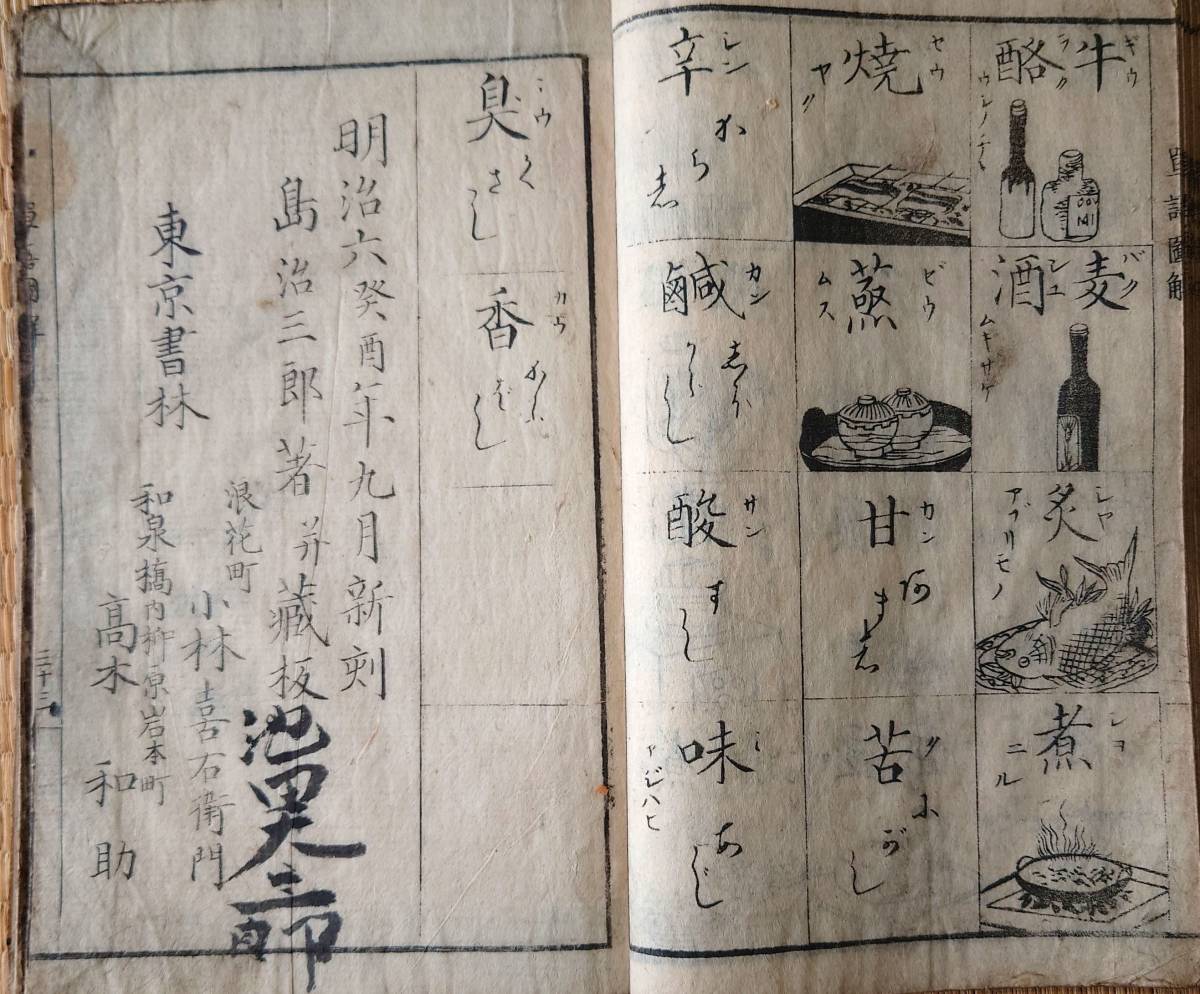 單語圖解
牛酪
ギウラク
ウシノチヽ
麦酒
バクシユ
ムギサケ
炙
シヤ
アブリモノ
煮
シヨ
ニル
燒
セウ
ヤク
蒸
ムス
甘
カン
あまし
苦
ク
にがし
辛
シン
からし
鹹
カン
しほ
からし
酸
サン
すし
味
ミ
あじ
アジハヒ
臭
くさし
香
カウ
かふばし
明治六癸酉年九月新刻
島治三郎著并藏板
東京書林
浪花町
小林喜右衛門
和泉橋内柳原岩本町
高木和助
三十三